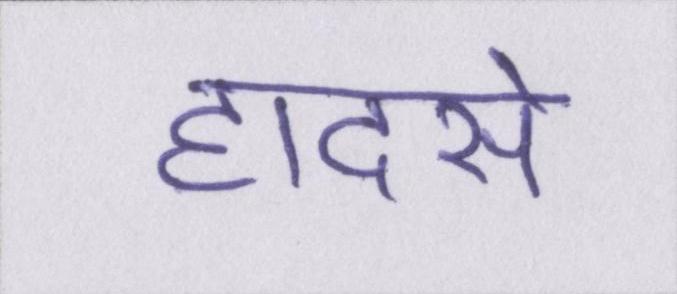 हादसे